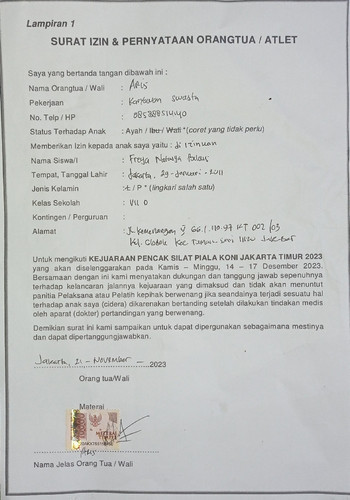 Lampiran 1
SURAT IZIN & PERNYATAAN ORANGTUA / ATLET
Saya yang bertanda tangan dibawah ini :
Nama Orangtua / Wali : ARIS
Pekerjaan : Karyawan Swasta
No. Telp / HP :
Status Terhadap Anak : Ayah / Ibu / Wali *(coret yang tidak perlu)
Memberikan Izin kepada anak saya yaitu : di izinkan
Nama Siswa/i :
Tempat, Tanggal Lahir : Jakarta, 29 - Januari - 2011
Jenis Kelamin : L / P * (lingkari salah satu)
Kelas Sekolah : VII D
Kontingen / Perguruan :
Alamat : RT 002 /03
Kec
Untuk mengikuti KEJUARAAN PENCAK SILAT PIALA KONI JAKARTA TIMUR 2023
yang akan diselenggarakan pada Kamis – Minggu, 14 – 17 Desember 2023.
Bersamaan dengan ini kami menyatakan dukungan dan tanggung jawab sepenuhnya
terhadap kelancaran jalannya kejuaraan yang dimaksud dan tidak akan menuntut
panitia Pelaksana atau Pelatih kepihak berwenang jika seandainya terjadi sesuatu hal
terhadap anak saya (cidera) dikarenakan bertanding setelah dilakukan tindakan medis
oleh aparat (dokter) pertandingan yang berwenang.
Demikian surat ini kami sampaikan untuk dapat dipergunakan sebagaimana mestinya
dan dapat dipertanggungjawabkan.
Jakarta, 21 - NOVEMBER - 2023
Orang tua/Wali
Materai
ARIS
Nama Jelas Orang Tua / Wali